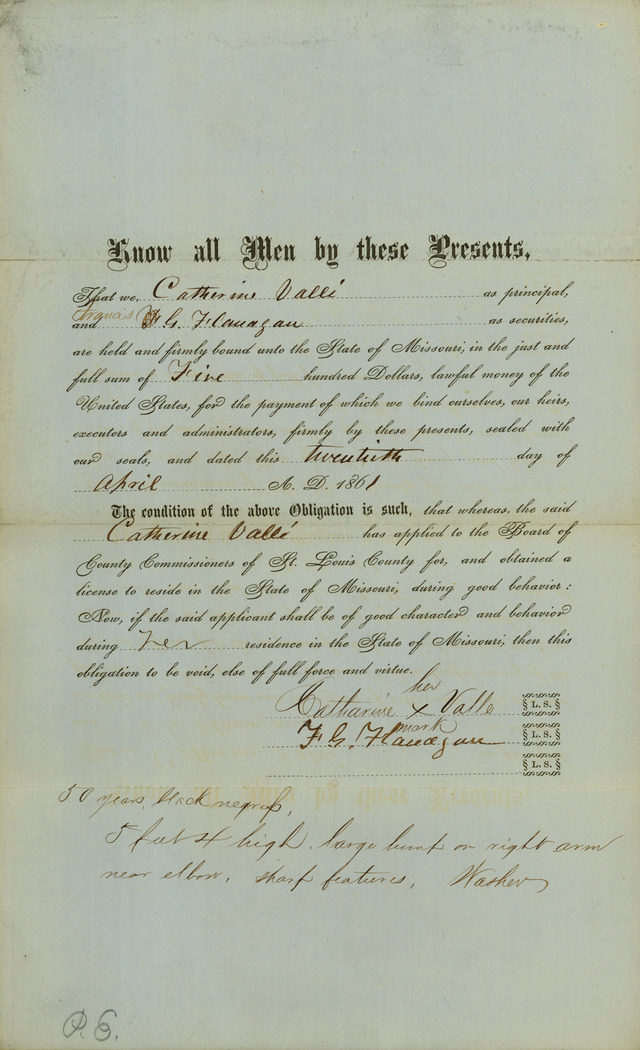 Know all Men by these Presents,
That we, Catherine Vallé as principal,
and F G. Flanagan as securities,
are held and firmly bound unto the State of Missouri, in the just and
full sum of Five hundred Dollars, lawful money of the
United States, for the payment of which we bind ourselves, our heirs,
executors and administrators, firmly by these presents, sealed with
our seals, and dated this twentieth day of
April A. D. 1861
The condition of the above Obligation is such, that whereas, the said
Catherine Vallé has applied to the Board of
County Commissioners of St. Louis County for, and obtained a
license to reside in the State of Missouri, during good behavior:
Now, if the said applicant shall be of good character and behavior
during her residence in the State of Missouri, then this
obligation to be void, else of full force and virtue.
her
Catharine x Valle § L. S. §
mark
F G. Flanagan § L. S. §
§ L. S. §
50 years, black negress,
5 feet 4 high, large bump on right arm
near elbow, sharp features, Washer